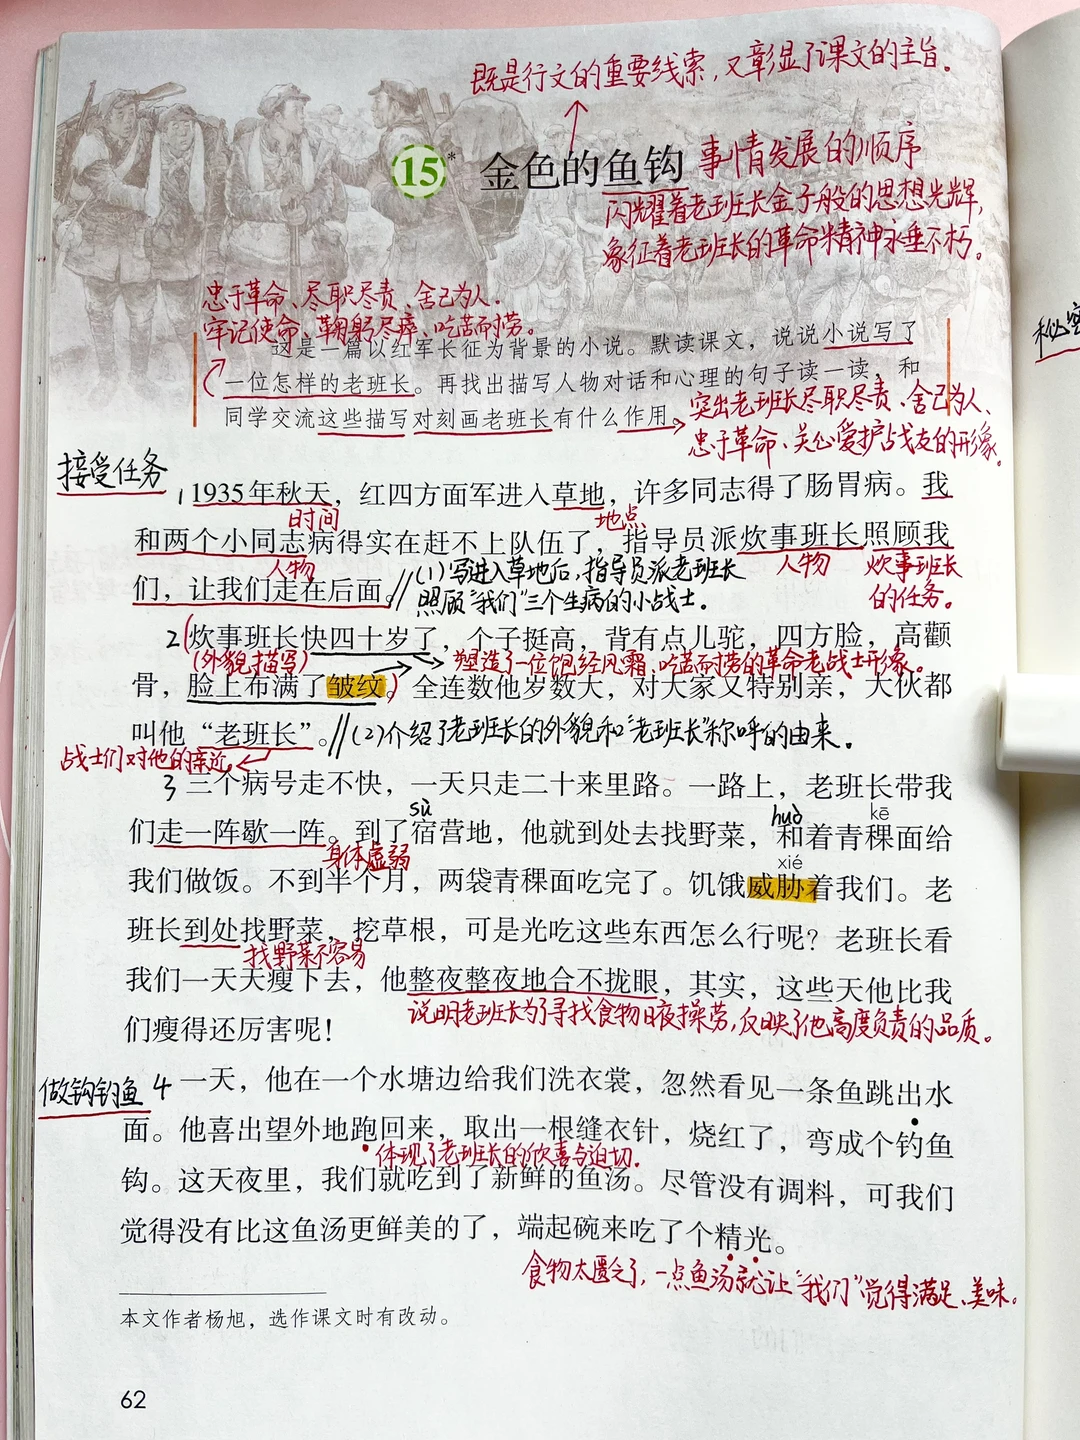 既是行文的重要线索，又彰显了课文的主旨。
15* 金色的鱼钩 事情发展的顺序
闪耀着老班长金子般的思想光辉，
象征着老班长的革命精神永垂不朽。
忠于革命、尽职尽责、舍己为人、
牢记使命、鞠躬尽瘁、吃苦耐劳。
这是一篇以红军长征为背景的小说。默读课文，说说小说写了
一位怎样的老班长。再找出描写人物对话和心理的句子读一读，和
同学交流这些描写对刻画老班长有什么作用。
突出老班长尽职尽责、舍己为人、
忠于革命、关心爱护战友的形象。
接受任务
1 1935年秋天，红四方面军进入草地，许多同志得了肠胃病。我
时间 地点
和两个小同志病得实在赶不上队伍了，指导员派炊事班长照顾我
人物 人物 炊事班长
们，让我们走在后面。//(1)写进入草地后，指导员派老班长
照顾“我们”三个生病的小战士。 的任务。
2(炊事班长快四十岁了，个子挺高，背有点儿驼，四方脸，高颧
(外貌描写) 塑造了一位饱经风霜、吃苦耐劳的革命老战士形象。
骨，脸上布满了皱纹。)全连数他岁数大，对大家又特别亲，大伙都
叫他“老班长”。//(2)介绍了老班长的外貌和“老班长”称呼的由来。
战士们对他的亲近。
3 三个病号走不快，一天只走二十来里路。一路上，老班长带我
sù huò kē
们走一阵歇一阵。到了宿营地，他就到处去找野菜，和着青稞面给
身体虚弱 xié
我们做饭。不到半个月，两袋青稞面吃完了。饥饿威胁着我们。老
班长到处找野菜，挖草根，可是光吃这些东西怎么行呢？老班长看
找野菜不容易
我们一天天瘦下去，他整夜整夜地合不拢眼，其实，这些天他比我
说明老班长为了寻找食物日夜操劳，反映了他高度负责的品质。
们瘦得还厉害呢！
做钩钓鱼 4 一天，他在一个水塘边给我们洗衣裳，忽然看见一条鱼跳出水
面。他喜出望外地跑回来，取出一根缝衣针，烧红了，弯成个钓鱼
体现了老班长的欣喜与迫切。
钩。这天夜里，我们就吃到了新鲜的鱼汤。尽管没有调料，可我们
觉得没有比这鱼汤更鲜美的了，端起碗来吃了个精光。
食物太匮乏了，一点鱼汤就让“我们”觉得满足、美味。
本文作者杨旭，选作课文时有改动。
62